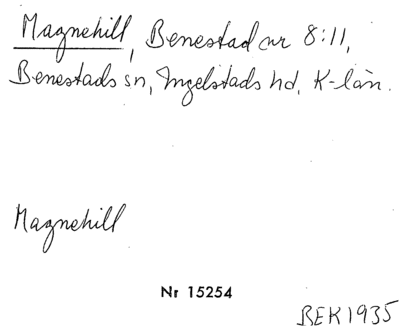 Magnehill, Benestad nr 8:11,
Benestads sn, Ingelstads hd, K-län.
Magnehill
Nr 15254
BEK1935